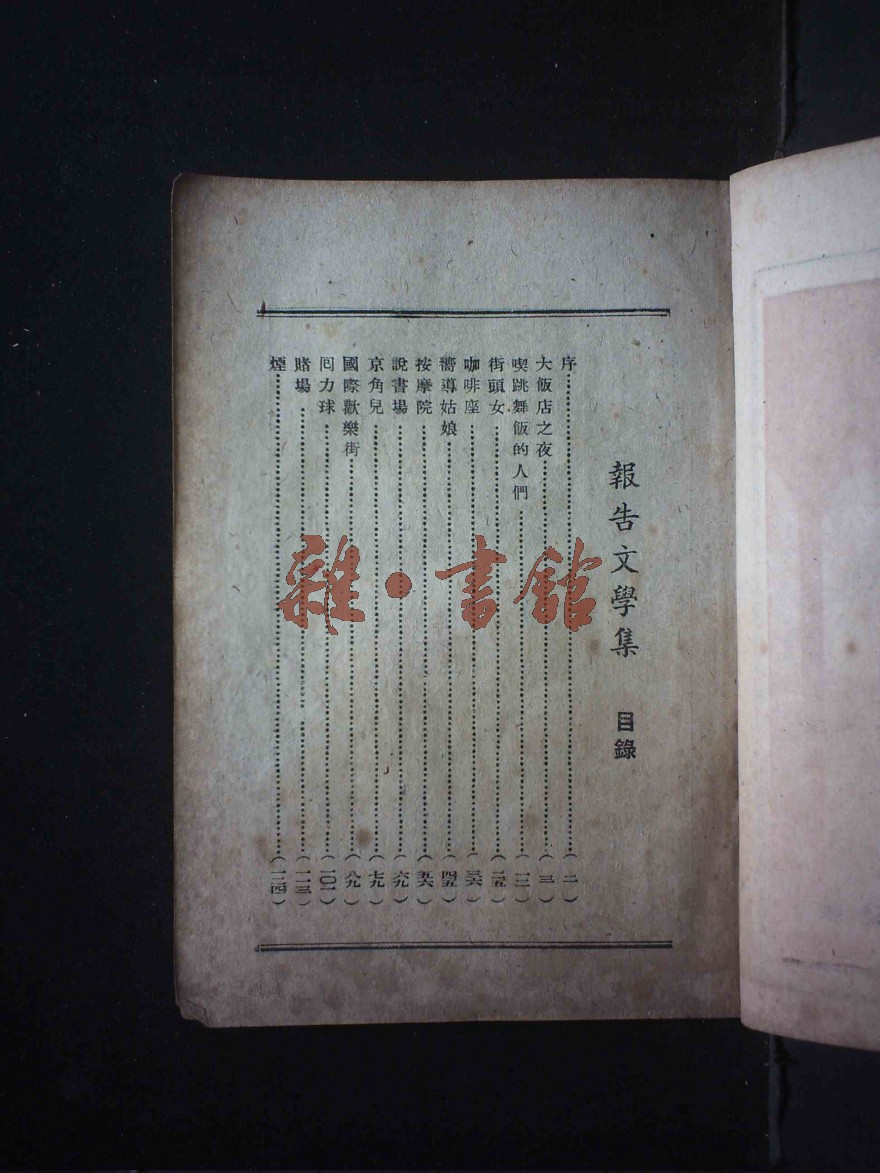 報告文學集 目錄
序……(一)
大飯店之夜……(三)
喫跳舞飯的人們……(一三)
街頭女……(二五)
咖啡座……(三六)
嚮導姑娘……(四五)
按摩院……(五六)
說書場……(六九)
京角兒……(七九)
國際歡樂街……(八九)
回力球……(一〇一)
賭場……(一一三)
煙……(一二四)
雜·書館